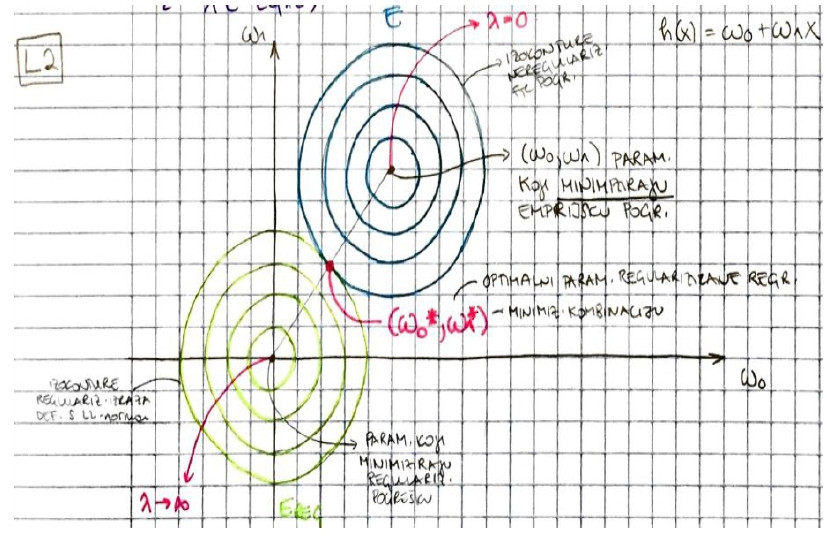 E
λ=0
h(x) = ω0 + ω1 X
ω1
L2
IZOKONTURE
NEREGULARIZ.
POGR.
(ω0, ω1) PARAM.
KOJI MINIMIZIRAJU
EMPIRIJSKU POGR.
OPTIMALNI PARAM. REGULARIZIRANE REGR.
(ω0*, ω1*) – MINIMIZ. KOMBINACIJU
ω0
IZOKONTURE
REGULARIZ. IZRAZA
DEF. S L2-NORMOM
PARAM. KOJI
MINIMIZIRAJU
REGULARIZ.
POGREŠKU
λ→∞
EREG